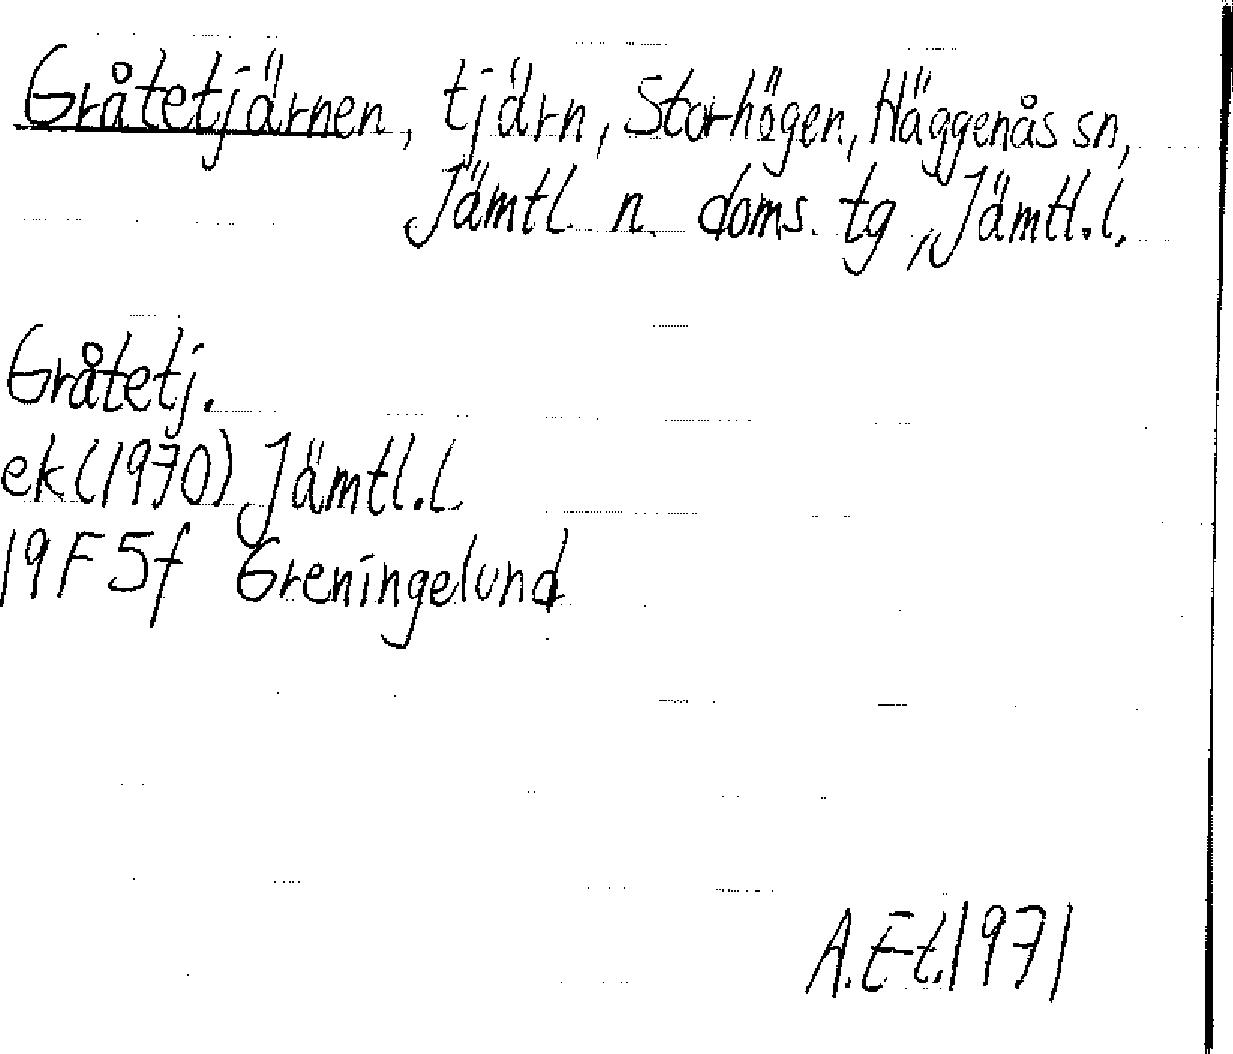 Gråtetjärnen, tjärn, Storhögen, Häggenås sn,
Jämtl n. doms. tg, Jämtl.l.
Gråtetj.
ek (1970) Jämtl.l
19F 5f Greningelund
A.Et.1971